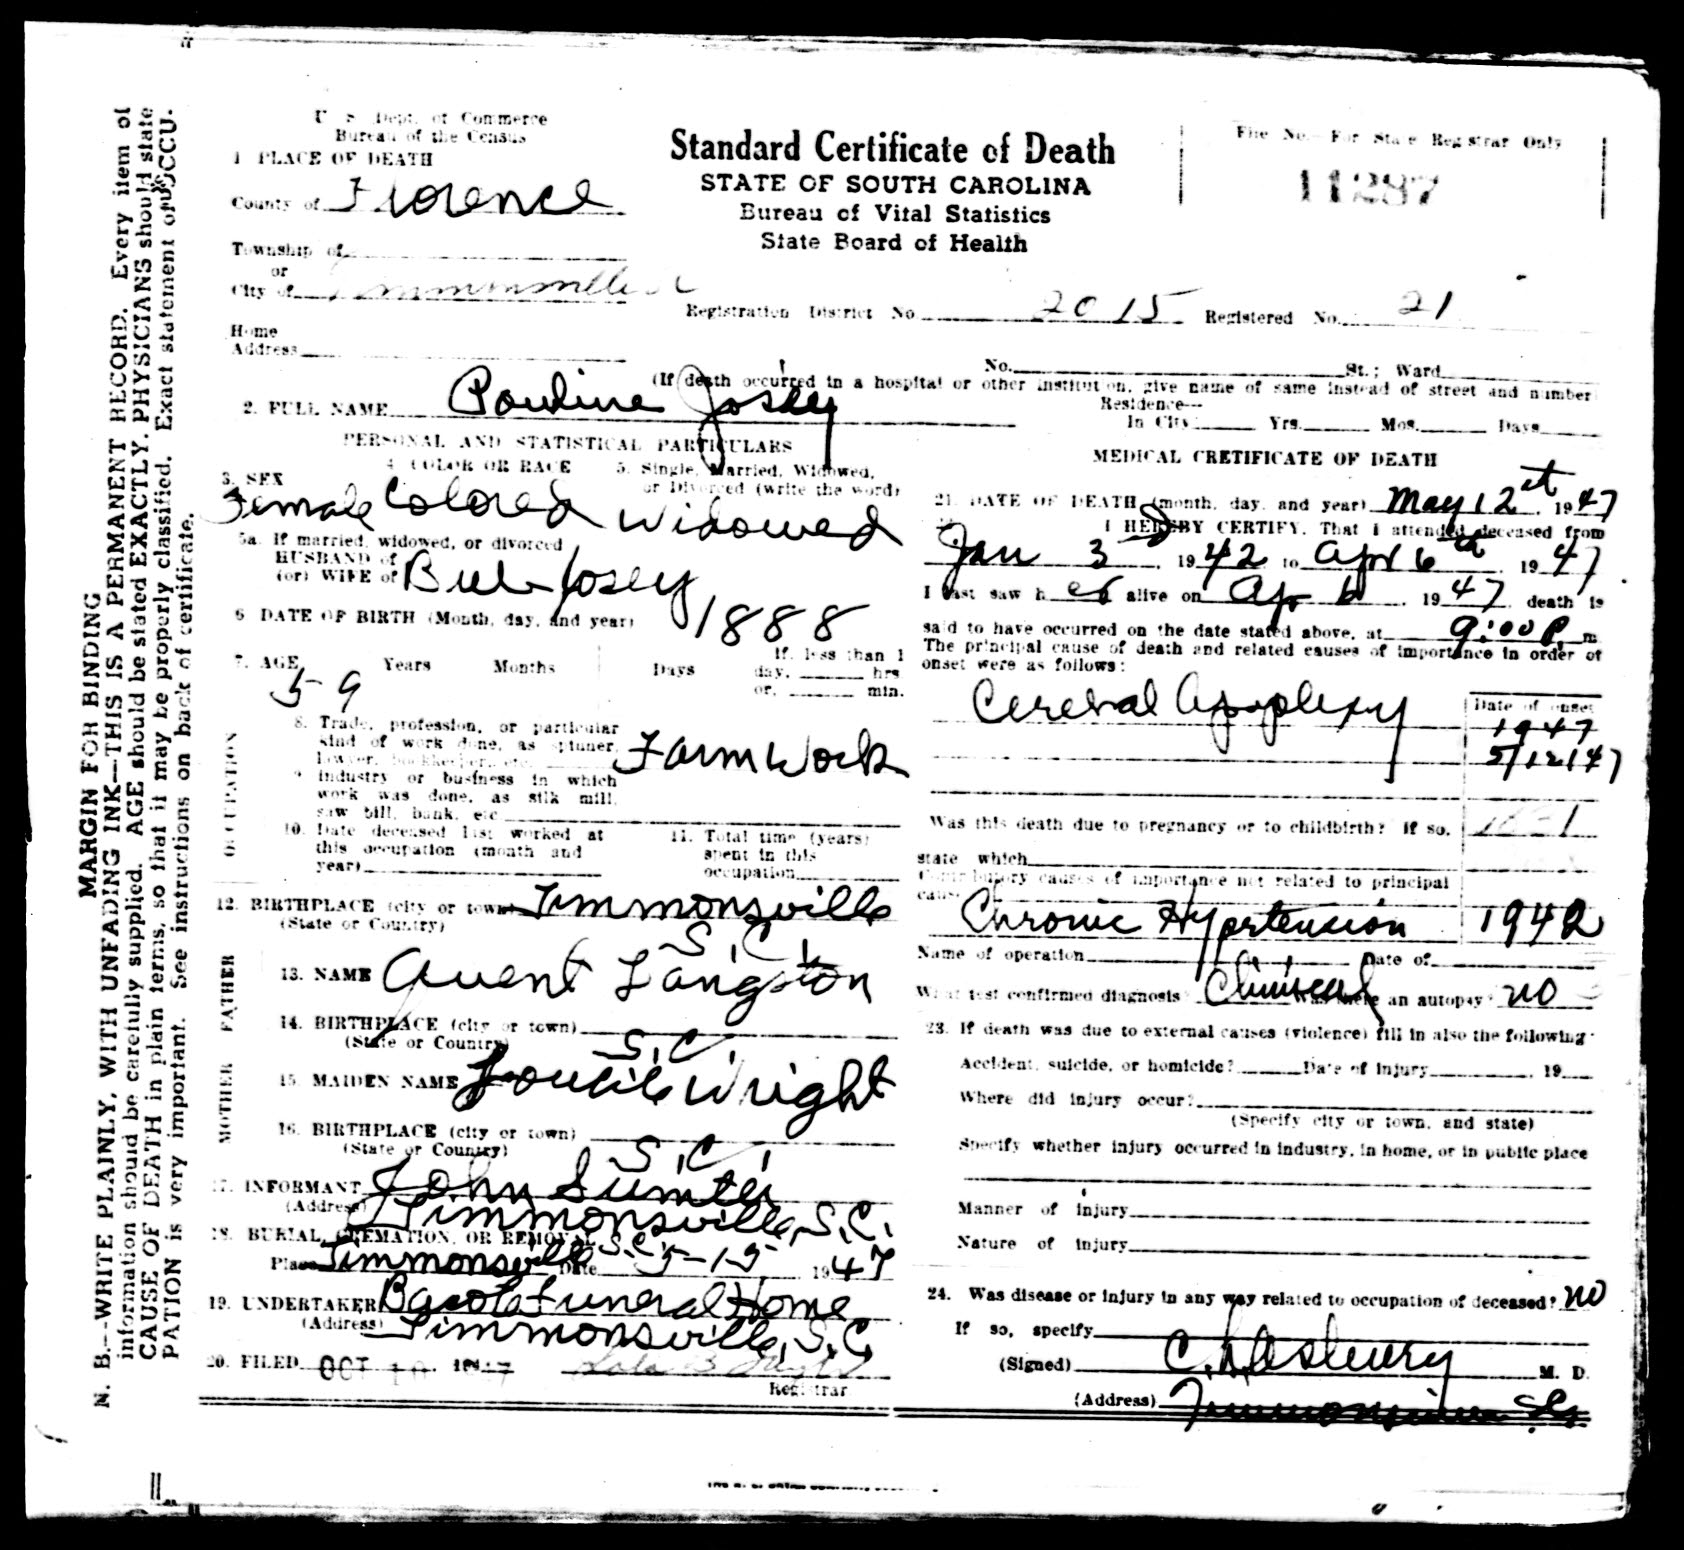 U. S. Dept. of Commerce
Bureau of the Census
Standard Certificate of Death
STATE OF SOUTH CAROLINA
Bureau of Vital Statistics
State Board of Health
File No.—For State Registrar Only
11287
1 PLACE OF DEATH
County of Florence
Township of
or
City of
Registration District No 2015 Registered No. 21
Home
Address
No. St.; Ward
(If death occurred in a hospital or other institution, give name of same instead of street and number
2. FULL NAME Pauline Josey
Residence—
In City Yrs. Mos. Days
PERSONAL AND STATISTICAL PARTICULARS
3. SEX
Female
4 COLOR OR RACE
Colored
5. Single, Married, Widowed,
or Divorced (write the word)
Widowed
5a. If married, widowed, or divorced
HUSBAND of
(or) WIFE of Josey
6 DATE OF BIRTH (Month, day, and year) 1888
7. AGE Years Months Days If less than 1
day, hrs
or, min.
59
OCCUPATION
8. Trade, profession, or particular
kind of work done, as spinner,
lawyer, bookkeeper, etc. Farm Work
9 industry or business in which
work was done, as silk mill,
saw bill, bank, etc
10. Date deceased last worked at
this occupation (month and
year)
11. Total time (years)
spent in this
occupation
12. BIRTHPLACE (city or town) Timmonsville
(State or Country) S.C.
FATHER
13. NAME Avent Langston
14. BIRTHPLACE (city or town)
(State or Country) S.C.
MOTHER
15. MAIDEN NAME Loucile Wright
16. BIRTHPLACE (city or town)
(State or Country) S.C.
17. INFORMANT John Sumter
(Address) Timmonsville, S.C.
18. BURIAL, CREMATION, OR REMOVAL
Place Timmonsville S.C. Date 5-15 1947
19. UNDERTAKER Funeral Home
(Address) Timmonsville, S.C.
20. FILED OCT 10 1947
Registrar
MEDICAL CRETIFICATE OF DEATH
21. DATE OF DEATH (month, day, and year) May 12 1947
I HEREBY CERTIFY, That I attended deceased from
Jan 3 1942 to Apr 6th 1947
I last saw her alive on Apr 6 1947 death is
said to have occurred on the date stated above, at 9:00 P m
The principal cause of death and related causes of importance in order of
onset were as follows:
Date of onset
Cerebral Apoplexy 1947
5/12/47
Was this death due to pregnancy or to childbirth? If so,
state which
Contributory causes of importance not related to principal
cause
Chronic Hypertension 1942
Name of operation Date of
What test confirmed diagnosis Clinical Was there an autopsy? no
23. If death was due to external causes (violence) fill in also the following:
Accident, suicide, or homicide? Date of injury 19
Where did injury occur?
(Specify city or town, and state)
Specify whether injury occurred in industry, in home, or in public place
Manner of injury
Nature of injury
24. Was disease or injury in any way related to occupation of deceased? no
If so, specify
(Signed) M. D.
(Address)
MARGIN FOR BINDING
N. B.—WRITE PLAINLY, WITH UNFADING INK—THIS IS A PERMANENT RECORD. Every item of
information should be carefully supplied. AGE should be stated EXACTLY. PHYSICIANS should state
CAUSE OF DEATH in plain terms, so that it may be properly classified. Exact statement of OCCU-
PATION is very important. See instructions on back of certificate.